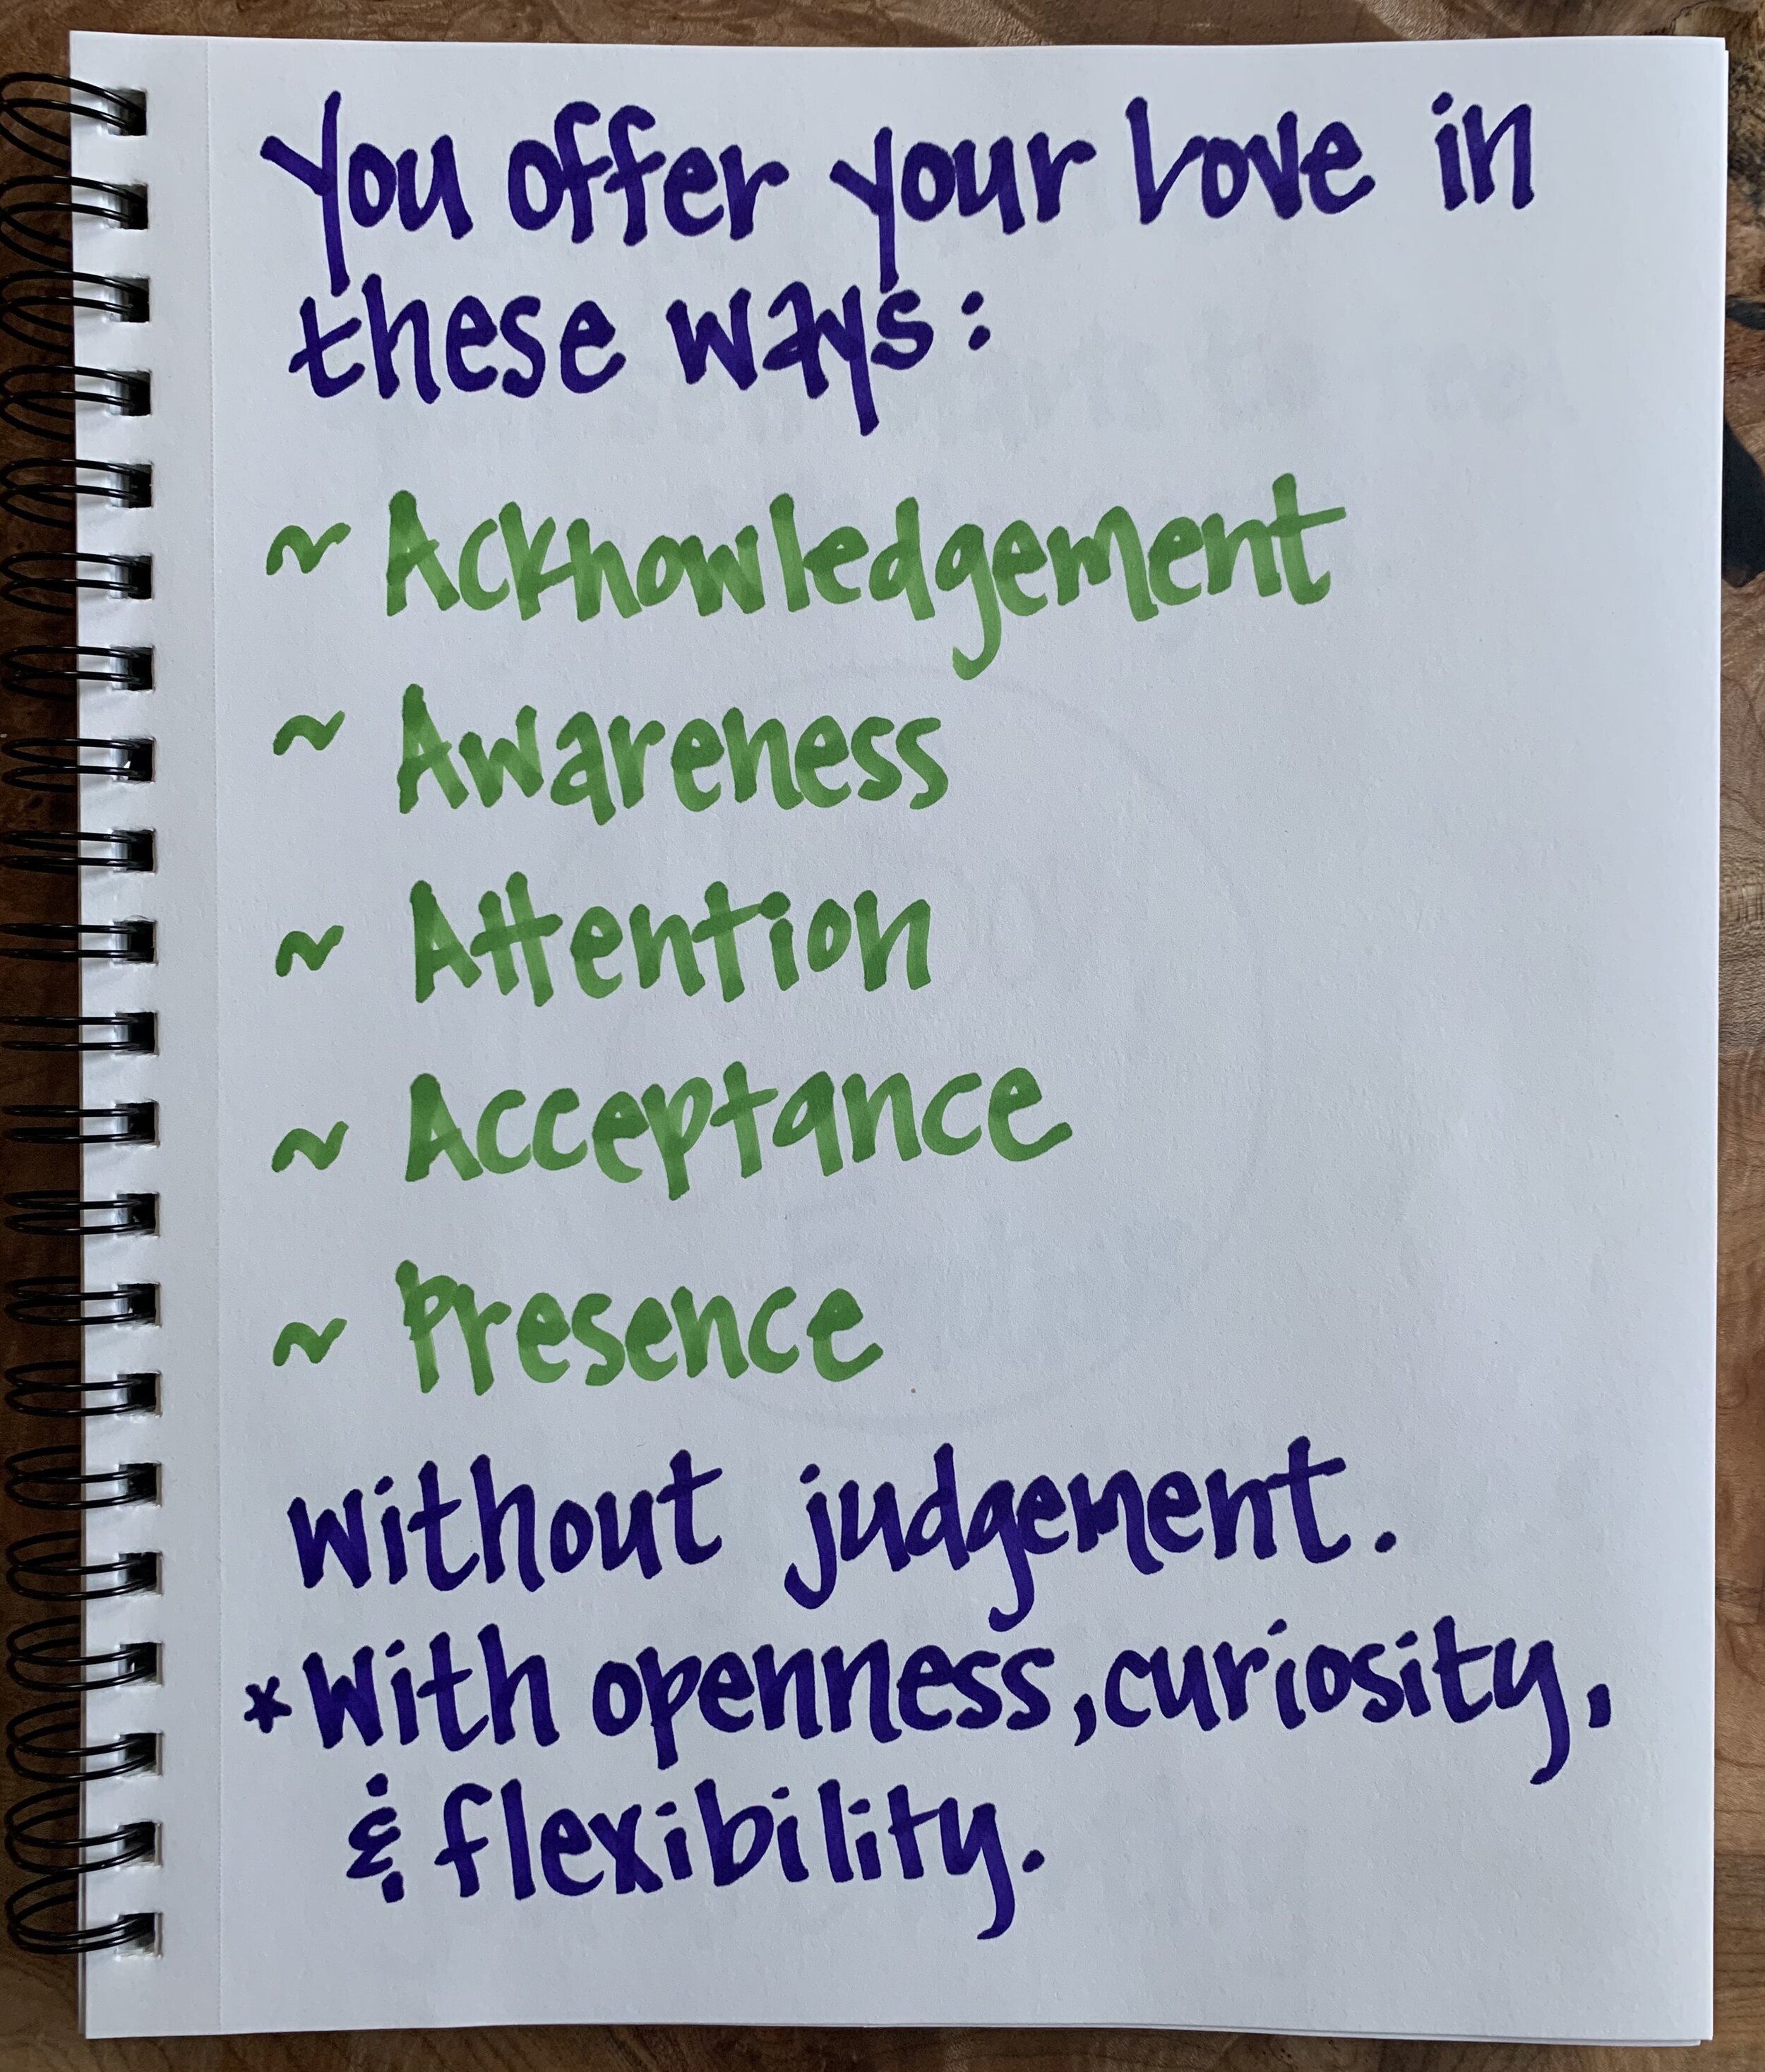 You offer your Love in
these ways:
~ Acknowledgement
~ Awareness
~ Attention
~ Acceptance
~ Presence
Without judgement.
*With openness, curiosity,
& flexibility.